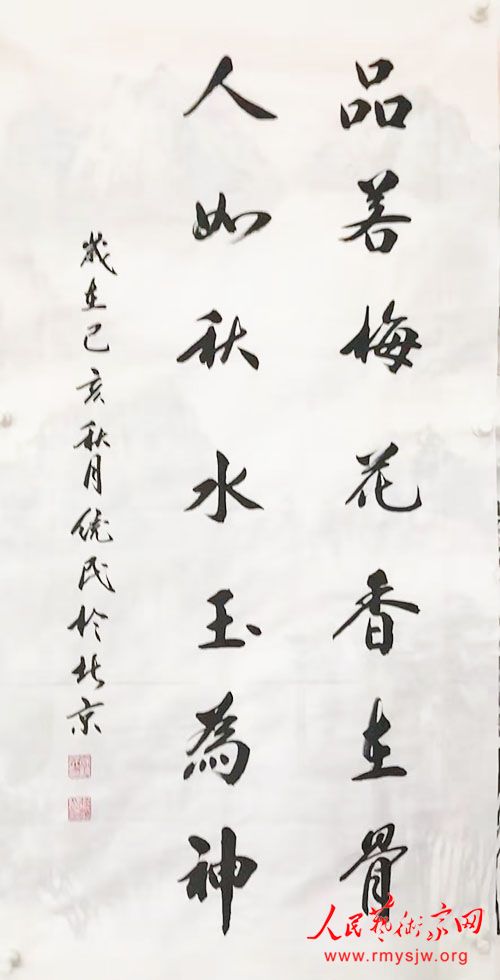 品若梅花香在骨
人如秋水玉為神
歲在己亥秋月統民於北京
人民藝術家网
www.rmysjw.org